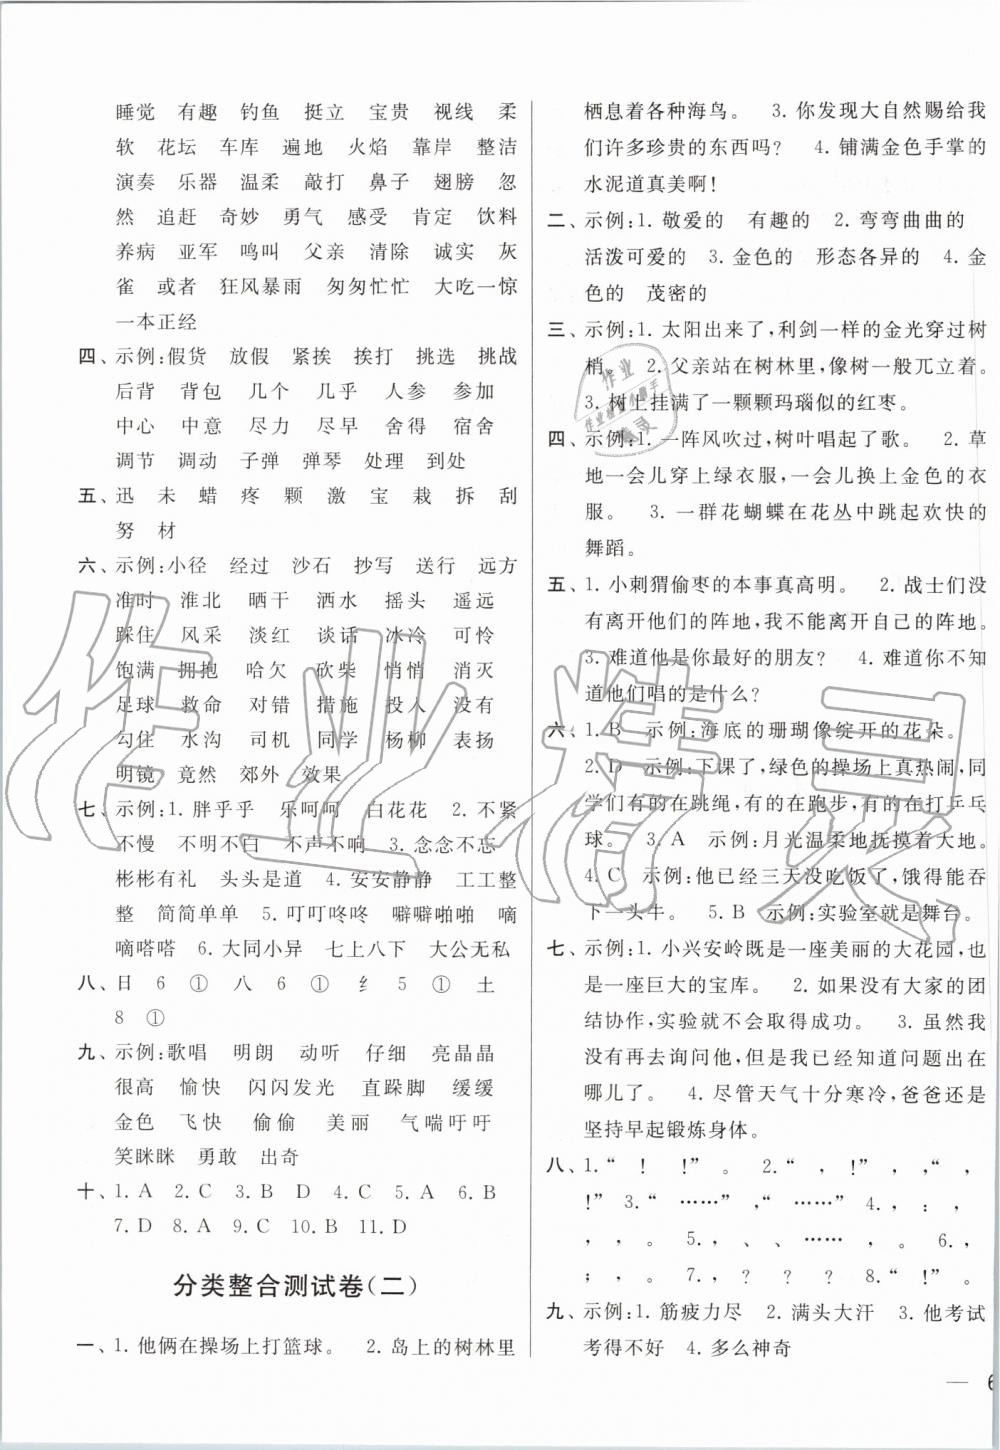 睡觉 有趣 钓鱼 挺立 宝贵 视线 柔
软 花坛 车库 遍地 火焰 靠岸 整洁
演奏 乐器 温柔 敲打 鼻子 翅膀 忽
然 追赶 奇妙 勇气 感受 肯定 饮料
养病 亚军 鸣叫 父亲 清除 诚实 灰
雀 或者 狂风暴雨 匆匆忙忙 大吃一惊
一本正经
四、示例:假货 放假 紧挨 挨打 挑选 挑战
后背 背包 几个 几乎 人参 参加
中心 中意 尽力 尽早 舍得 宿舍
调节 调动 子弹 弹琴 处理 到处
五、迅 未 蜡 疼 颗 激 宝 栽 拆 刮
努 材
六、示例:小径 经过 沙石 抄写 送行 远方
准时 淮北 晒干 洒水 摇头 遥远
踩住 风采 淡红 谈话 冰冷 可怜
饱满 拥抱 哈欠 砍柴 悄悄 消灭
足球 救命 对错 措施 投入 没有
勾住 水沟 司机 同学 杨柳 表扬
明镜 竟然 郊外 效果
七、示例:1. 胖乎乎 乐呵呵 白花花 2. 不紧
不慢 不明不白 不声不响 3. 念念不忘
彬彬有礼 头头是道 4. 安安静静 工工整
整 简简单单 5. 叮叮咚咚 噼噼啪啪 嘀
嘀嗒嗒 6. 大同小异 七上八下 大公无私
八、日 6 ① 八 6 ① 纟 5 ① 土
8 ①
九、示例:歌唱 明朗 动听 仔细 亮晶晶
很高 愉快 闪闪发光 直跺脚 缓缓
金色 飞快 偷偷 美丽 气喘吁吁
笑眯眯 勇敢 出奇
十、1. A 2. C 3. B D 4. C 5. A 6. B
7. D 8. A 9. C 10. B 11. D
分类整合测试卷(二)
一、1. 他俩在操场上打篮球。 2. 岛上的树林里
栖息着各种海鸟。 3. 你发现大自然赐给我
们许多珍贵的东西吗? 4. 铺满金色手掌的
水泥道真美啊!
二、示例:1. 敬爱的 有趣的 2. 弯弯曲曲的
活泼可爱的 3. 金色的 形态各异的 4. 金
色的 茂密的
三、示例:1. 太阳出来了,利剑一样的金光穿过树
梢。 2. 父亲站在树林里,像树一般兀立着。
3. 树上挂满了一颗颗玛瑙似的红枣。
四、示例:1. 一阵风吹过,树叶唱起了歌。 2. 草
地一会儿穿上绿衣服,一会儿换上金色的衣
服。 3. 一群花蝴蝶在花丛中跳起欢快的
舞蹈。
五、1. 小刺猬偷枣的本事真高明。 2. 战士们没
有离开他们的阵地,我不能离开自己的阵地。
3. 难道他是你最好的朋友? 4. 难道你不知
道他们唱的是什么?
六、1. B 示例:海底的珊瑚像绽开的花朵。
2. D 示例:下课了,绿色的操场上真热闹,同
学们有的在跳绳,有的在跑步,有的在打乒乓
球。 3. A 示例:月光温柔地抚摸着大地。
4. C 示例:他已经三天没吃饭了,饿得能吞
下一头牛。 5. B 示例:实验室就是舞台。
七、示例:1. 小兴安岭既是一座美丽的大花园,也
是一座巨大的宝库。 2. 如果没有大家的团
结协作,实验就不会取得成功。 3. 虽然我
没有再去询问他,但是我已经知道问题出在
哪儿了。 4. 尽管天气十分寒冷,爸爸还是
坚持早起锻炼身体。
八、1. “ ! !” 。 2. “ , !” , ,“ ,
!” 3. “ ……” ,“ ……” 4. , : ,
, , 。 5. , 、 、 …… , 。 6. ,
; , 。 7. , ? ? ? 8. “ !” 。
九、示例:1. 筋疲力尽 2. 满头大汗 3. 他考试
考得不好 4. 多么神奇
— 6
作业精灵
作业
作业检查小助手
精灵